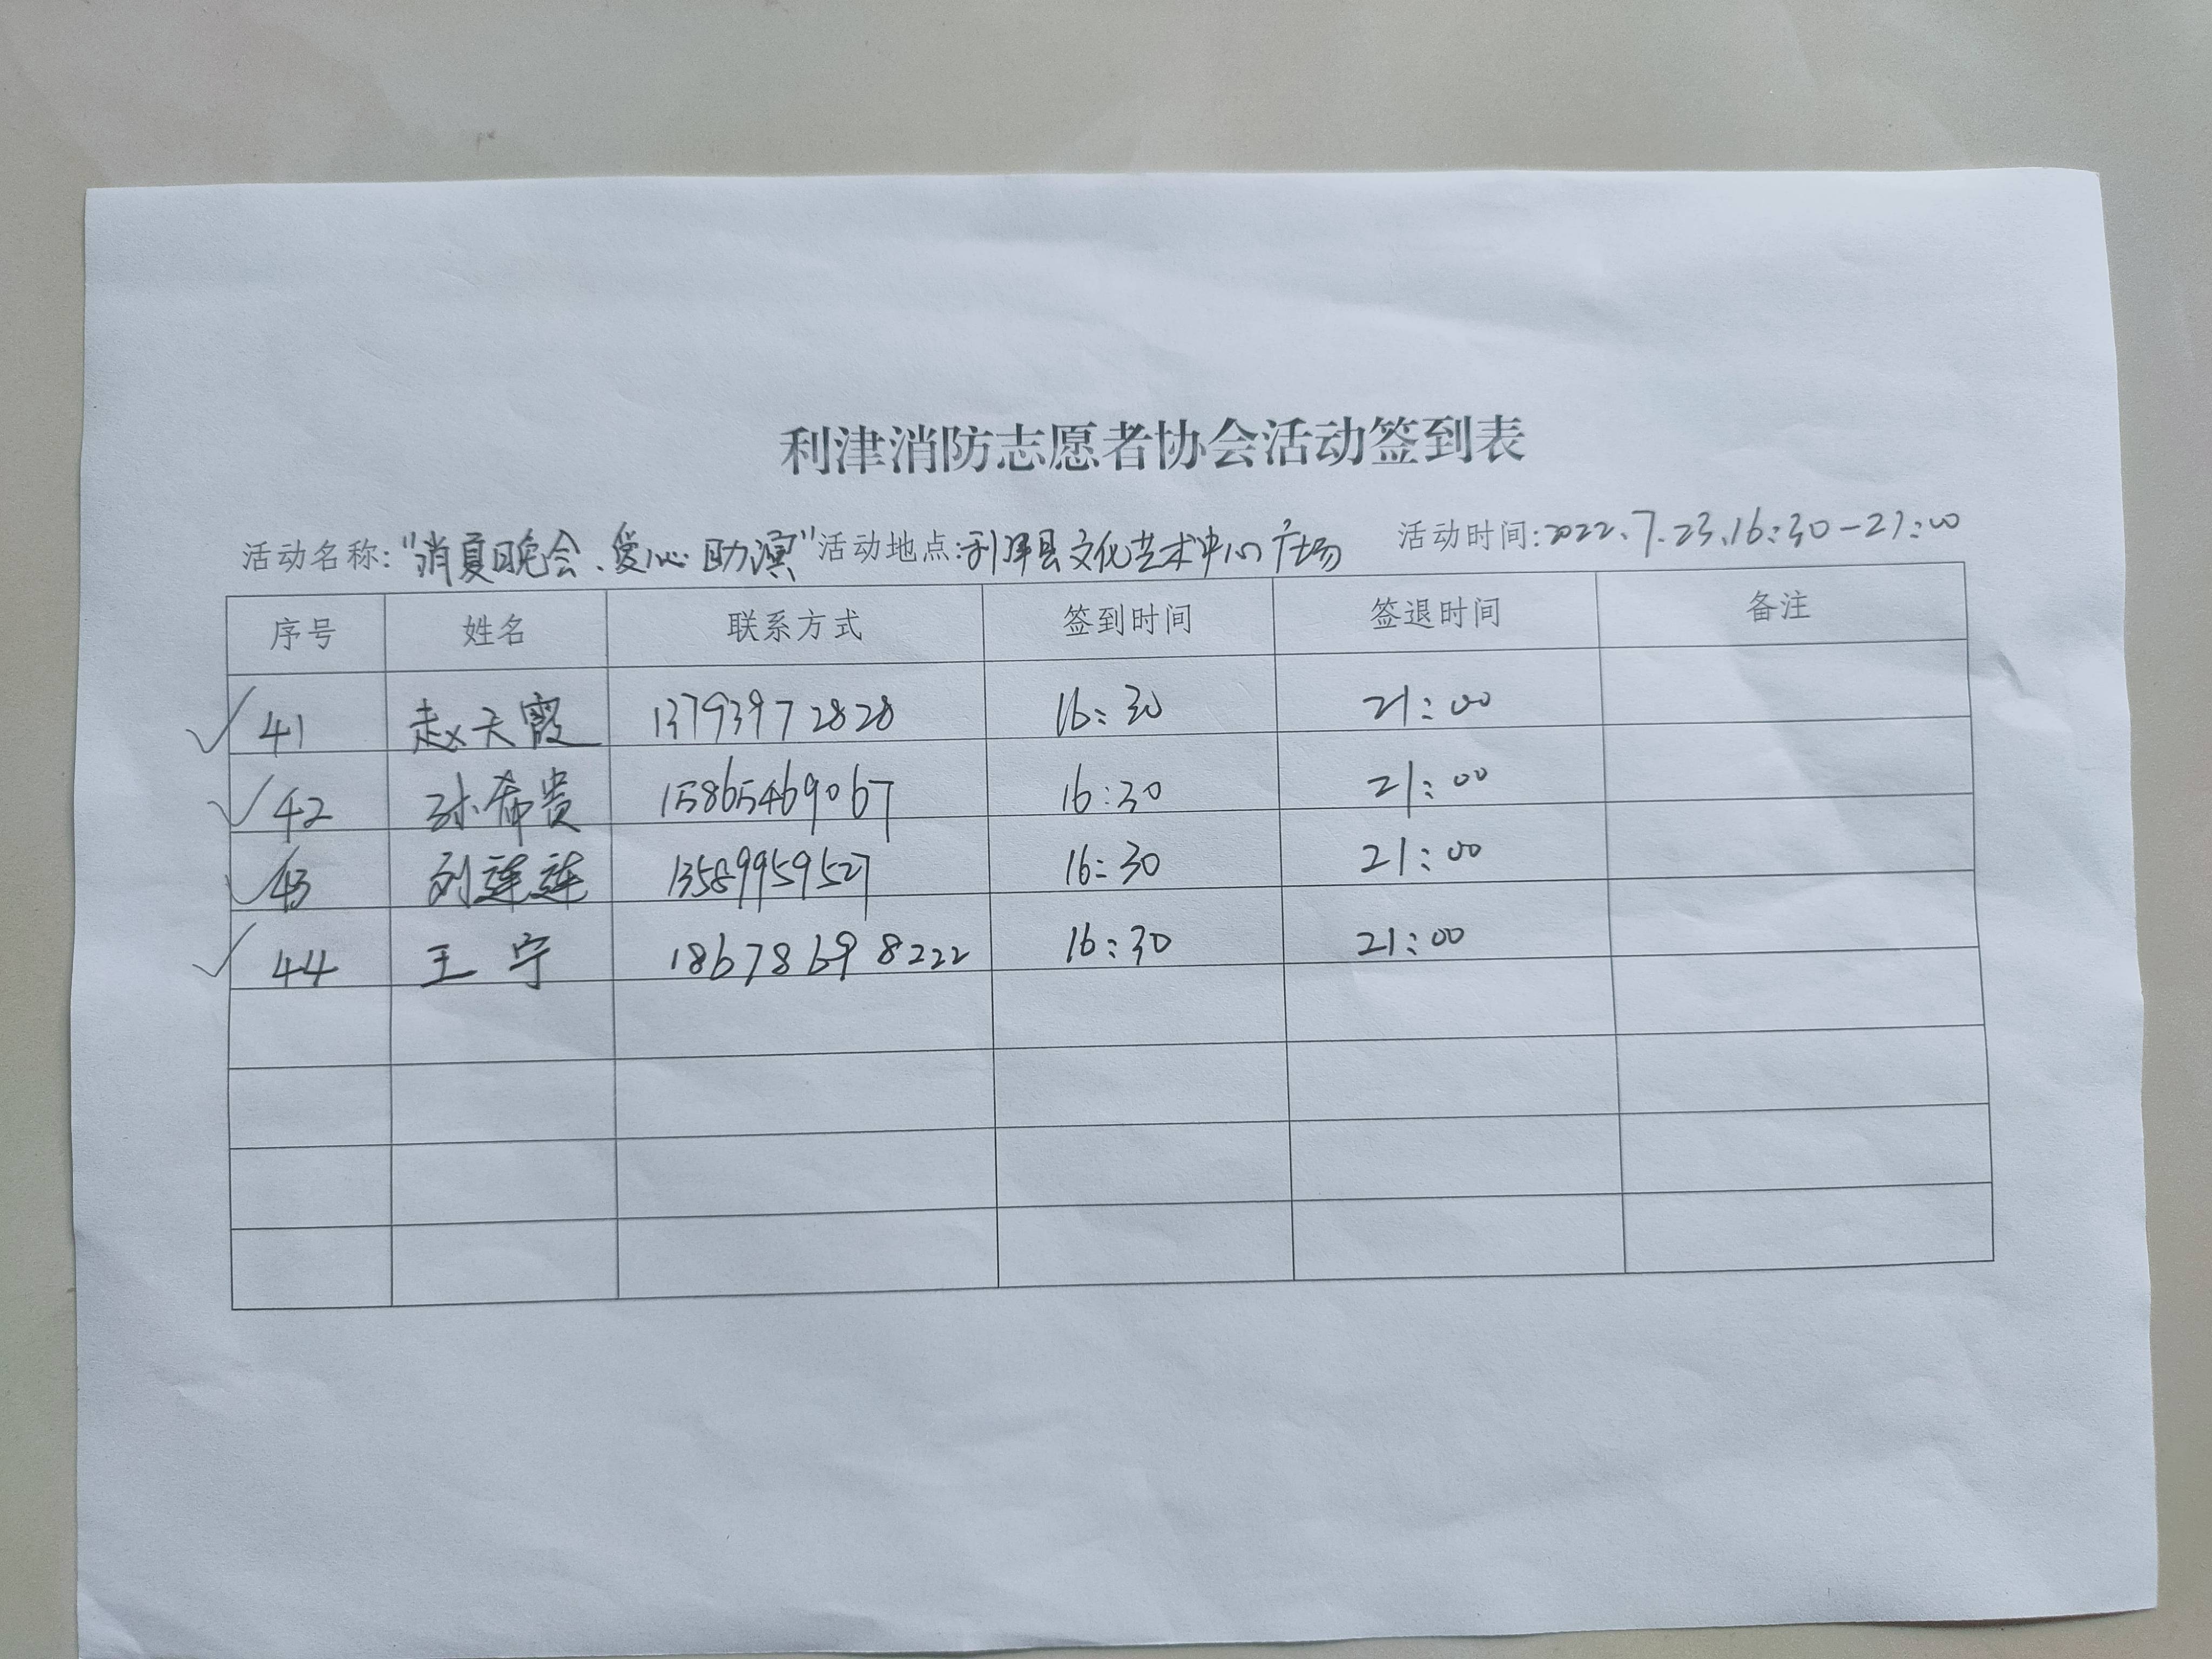 利津消防志愿者协会活动签到表
活动名称:"消夏晚会、爱心助演"活动地点:利津县文化艺术中心广场 活动时间:2022.7.23.16:30-21:00
序号 姓名 联系方式 签到时间 签退时间 备注
41 赵天霞 13793972828 16:30 21:00
42 孙希贵 15865469067 16:30 21:00
43 刘连连 13589959527 16:30 21:00
44 王宁 18678698222 16:30 21:00